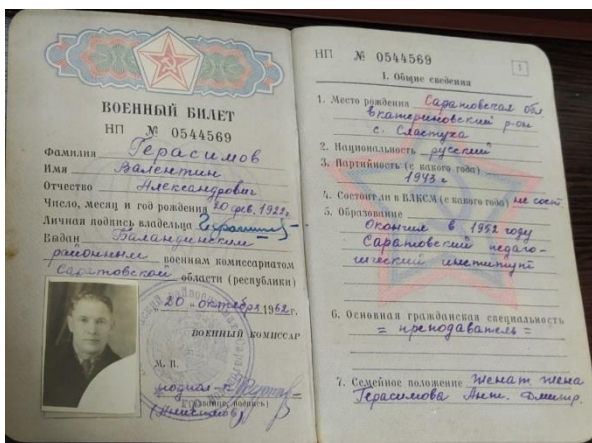 ВОЕННЫЙ БИЛЕТ
НП № 0544569
Фамилия Герасимов
Имя Валентин
Отчество Александрович
Число, месяц и год рождения 20 фев. 1922г.
Личная подпись владельца
Выдан Баландинским
районным военным комиссариатом
Саратовской области (республики)
"20" октября 1962г.
ВОЕННЫЙ КОМИССАР
М. П.
подпол-к
(звание, подпись)
(Анисимов)
НП № 0544569
5
1. Общие сведения
1. Место рождения Саратовская обл
Екатериновский р-он
с. Сластуха
2. Национальность русский
3. Партийность (с какого года)
1943 г
4. Состоит ли в ВЛКСМ (с какого года) не сост
5. Образование
Окончил в 1952 году
Саратовский педаго-
гический институт
6. Основная гражданская специальность
= преподаватель =
7. Семейное положение женат жена
Герасимова Ант. Дмитр.